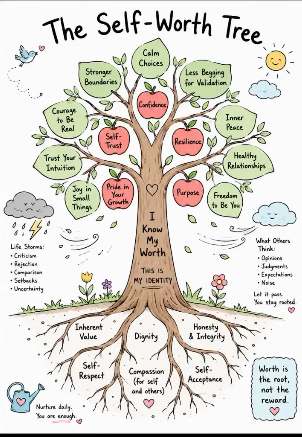 The Self-Worth Tree
Calm
Choices
Stronger
Boundaries
Less Begging
for Validation
Confidence
Courage
to Be
Real
Self-
Trust
Resilience
Inner
Peace
Trust Your
Intuition
Healthy
Relationships
Joy in
Small
Things
Pride in
Your
Growth
Purpose
Freedom
to Be You
I
Know
My
Worth
THIS IS
MY IDENTITY
Life Storms:
• Criticism
• Rejection
• Comparison
• Setbacks
• Uncertainty
What Others
Think:
• Opinions
• Judgments
• Expectations
• Noise
Let it pass.
You stay rooted.
Inherent
Value
Dignity
Honesty
& Integrity
Self-
Respect
Compassion
(for self
and others)
Self-
Acceptance
Worth is
the root,
not the
reward.
Nurture daily.
You are enough.